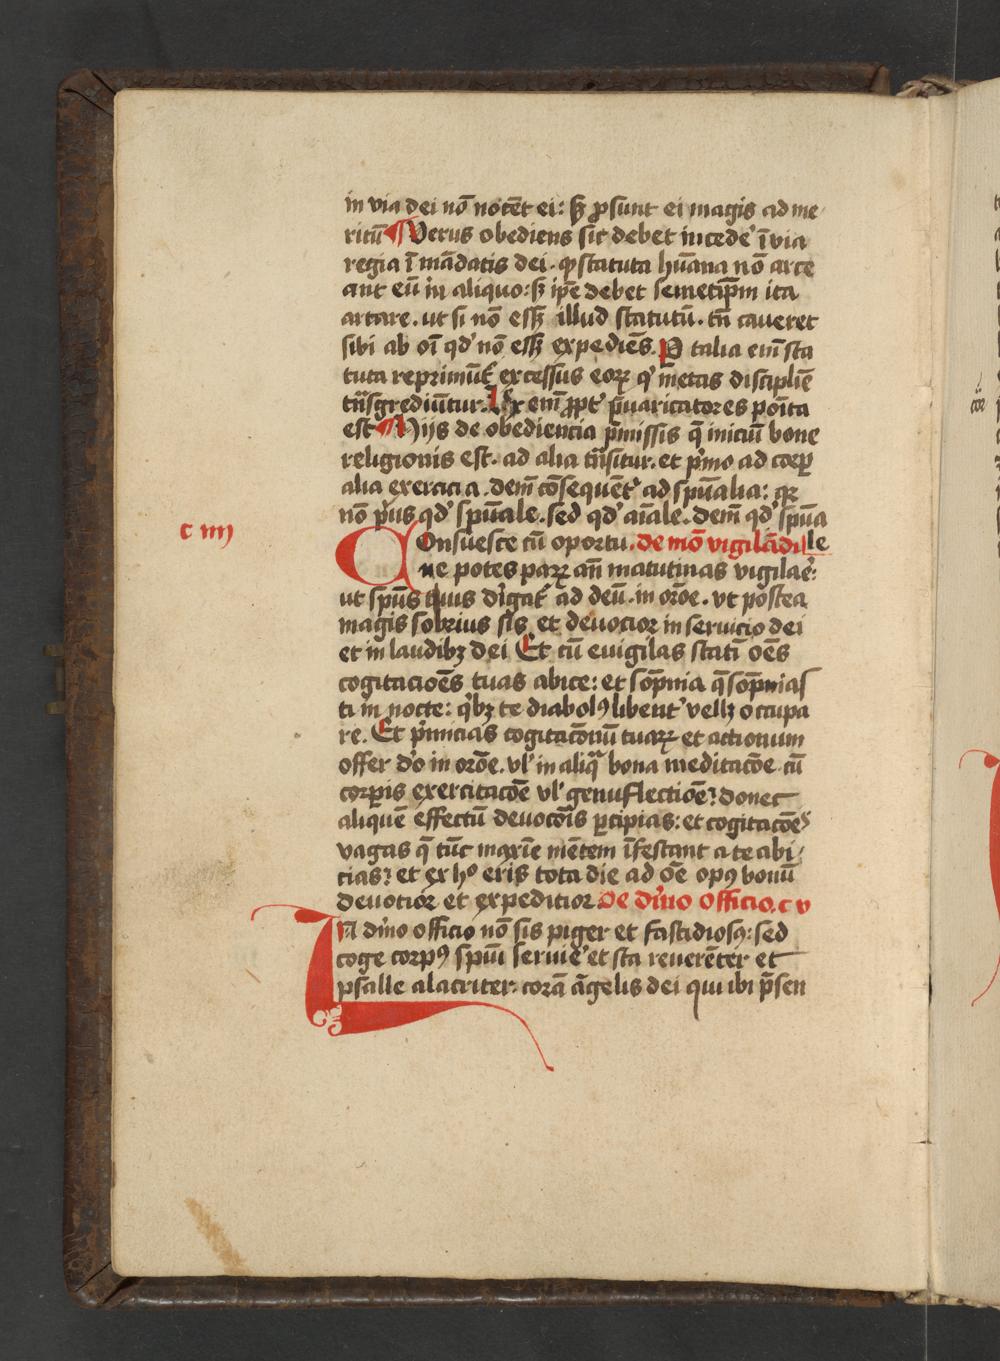 in via dei nō nocēt ei: sꝫ ꝓsunt ei magis ad me
ritū ¶ Verus obediens sic debet incede͛ ī via
regia ī mādatis dei. ꝙ statuta hūana nō arce
ant eū in aliquo: sꝫ ip̄e debet semetip̄m ita
artare. ut si nō essꝫ illud statutū. tn̄ caueret
sibi ab oī qd̛ nō essꝫ expediēs. P talia em̄ sta
tuta reprimūt͛ excessus eoꝝ q̛ metas disciplīe
tn̄sgrediūtur. Lex em̄ ꝓpt͛ p̄uaricatores poīta
est ¶ Hijs de obediencia p̄missis q̄ iniciū bone
religionis est. ad alia tn̄situr. et p͛mo ad coꝛꝑ
alia exercicia. dem̄ cōsequēt͛ ad spūalia: qꝛ
nō p͛us qd̛ spūale. sed qd̛ aīale. dem̄ qd̛ spūa
c iiij
Onsuesce cū oportu. de mō vigilādi le
ne potes parꝝ an̄ matutinas vigilae͛:
ut spūs tuus d͛igat͛ ad deū. in orōe. vt postea
magis sobrius sis et deuocioꝛ in seruicio dei
et in laudibꝫ dei Et cū euigilas statī oēs
cogitacioēs tuas abice: et sōpnia q̄ sōpnias
ti in nocte: q͛bꝫ te diabolꝰ libent͛ vellꝫ occupa
re. Et p͛micias cogitacōnū tuaꝝ et actionum
offer d̛o in orōe. vl̛ in aliqᵃ bona meditacōe. cū
corꝑis exercitacōe vl̛ genuflectiōe: donec
aliquē effectū deuocōis ꝑcipias: et cogitacōes
vagas q̄ tūc maxīe mētem īfestant a te abi
cias: et ex hᵒ eris tota die ad oē opꝰ bonū
deuotior et expeditior De d͛ino officio. c v
IN d͛ino officio nō sis piger et fastidiosꝰ: sed
coge corpꝰ spūi seruie͛ et sta reuerēter et
psalle alacriter. corā āgelis dei qui ibi p̄sen